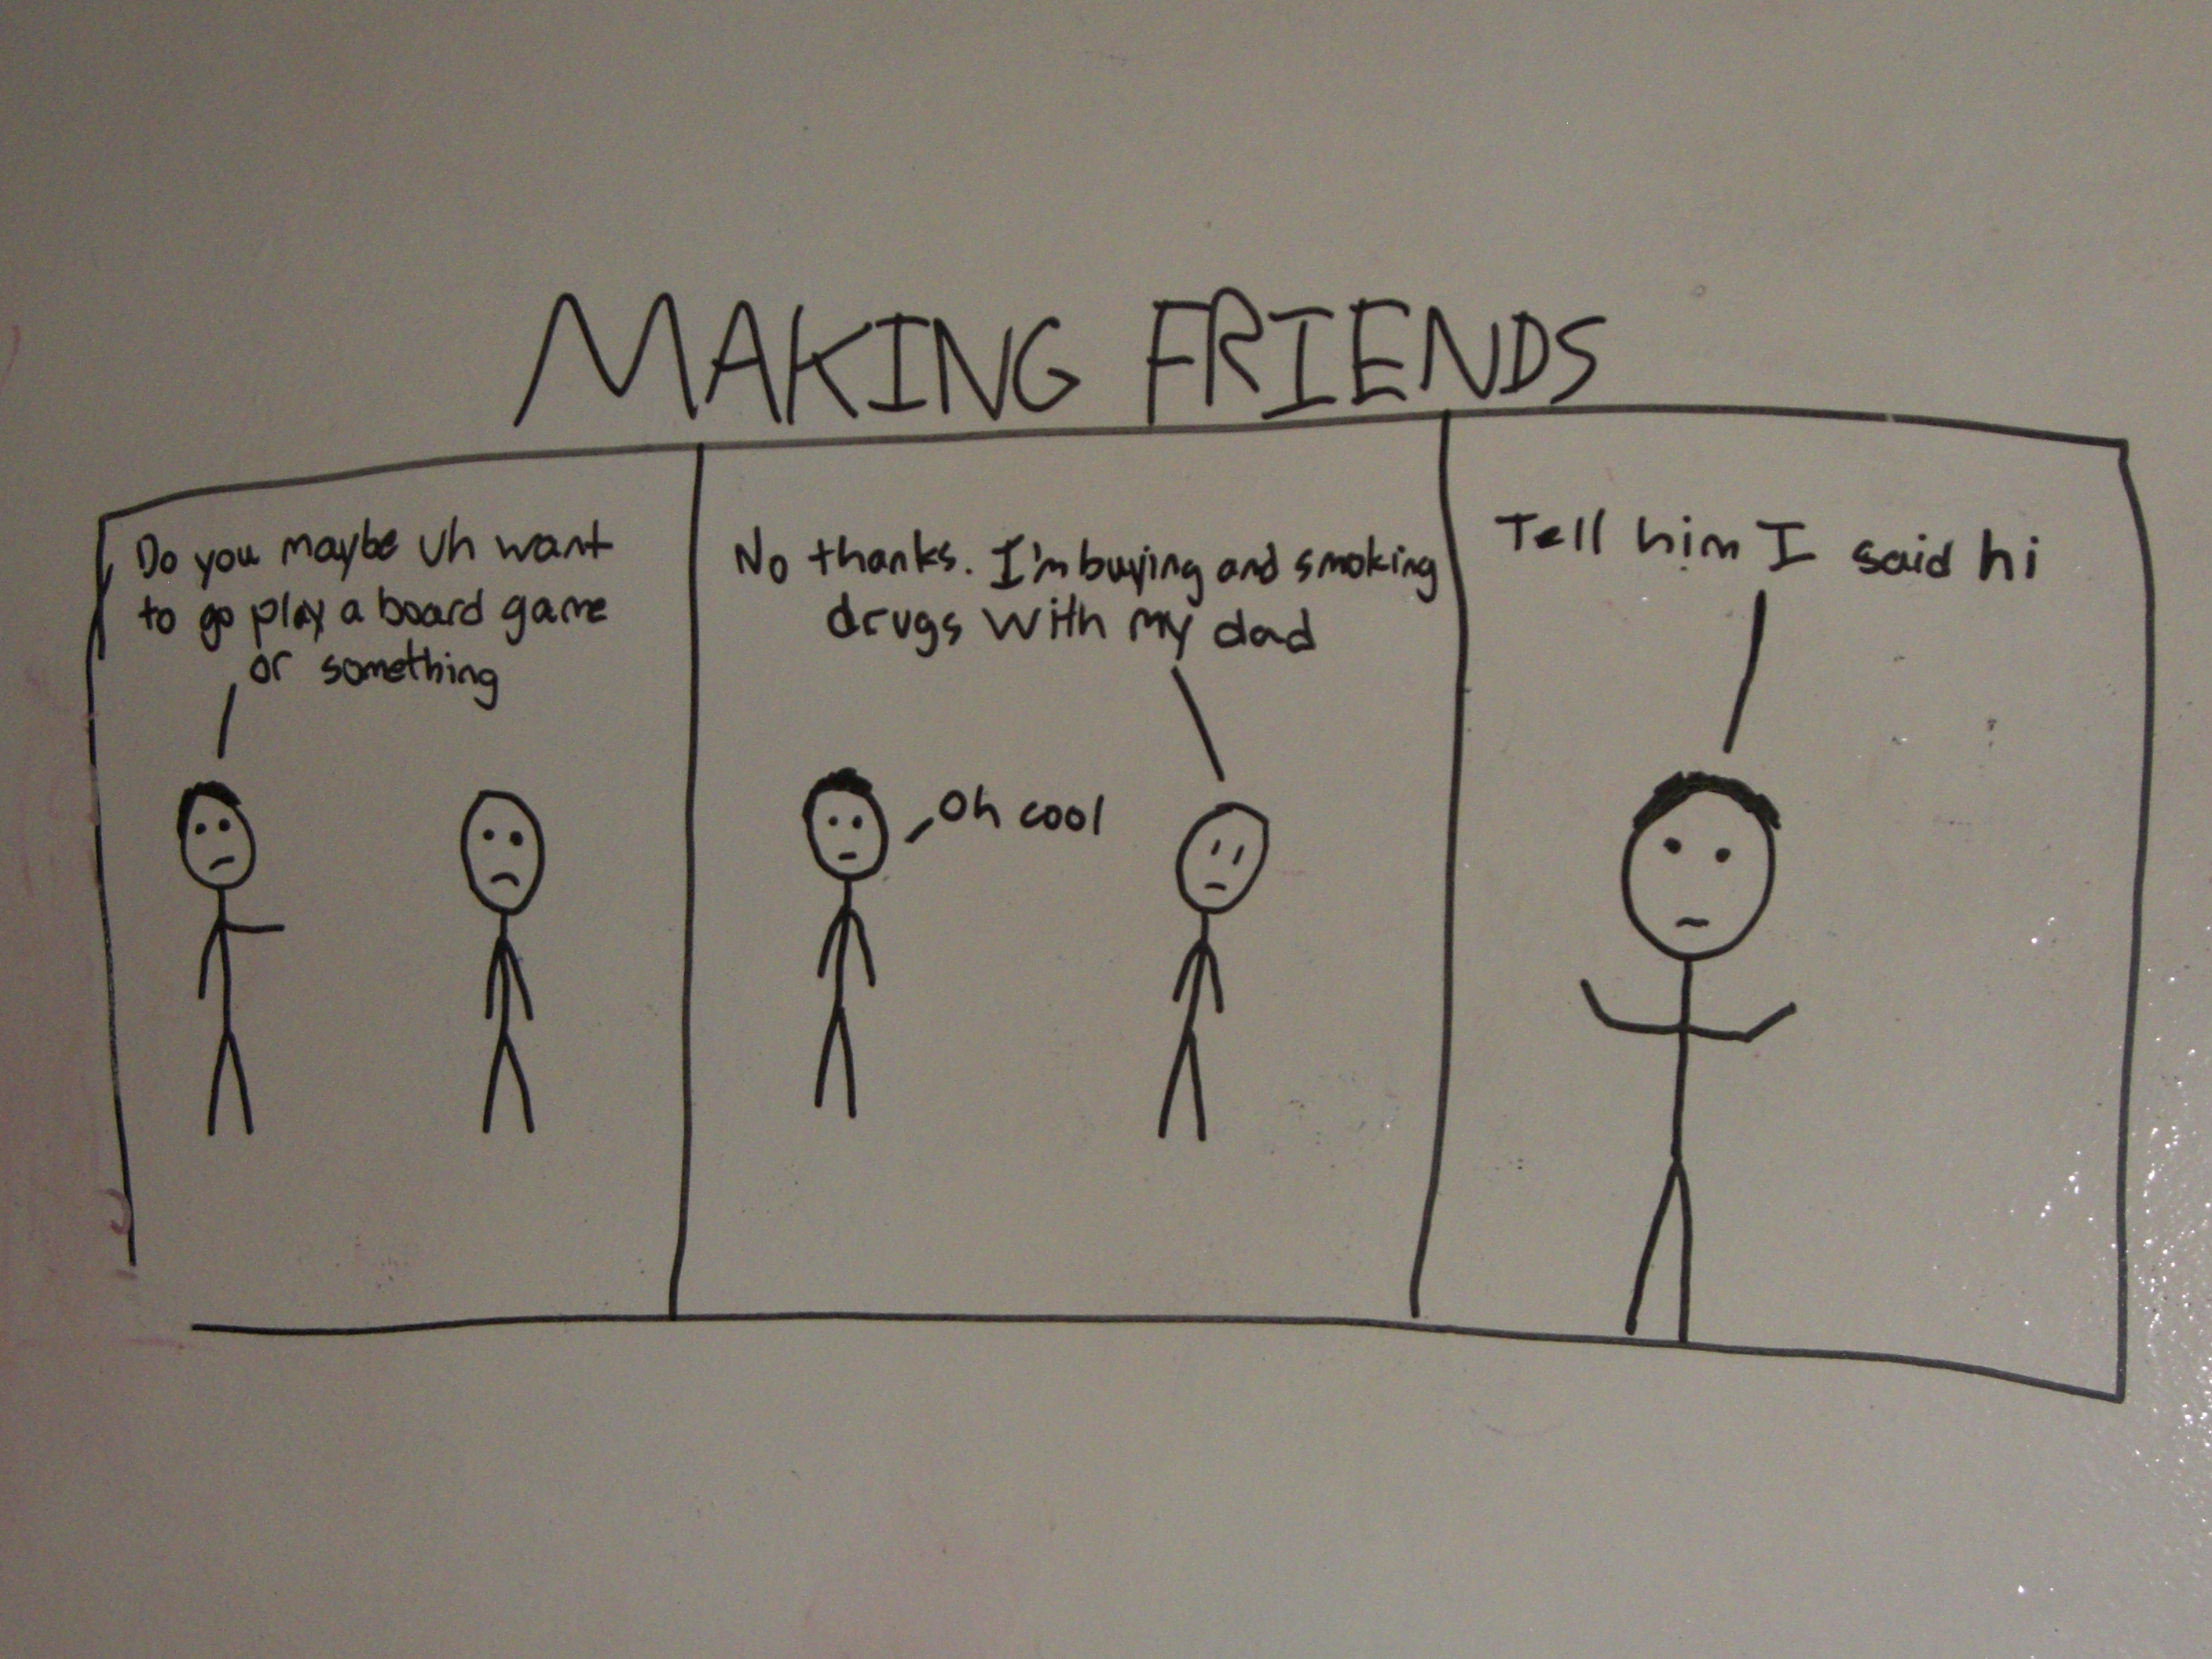 MAKING FRIENDS
Do you maybe uh want
to go play a board game
or something
No thanks. I'm buying and smoking
drugs with my dad
Oh cool
Tell him I said hi